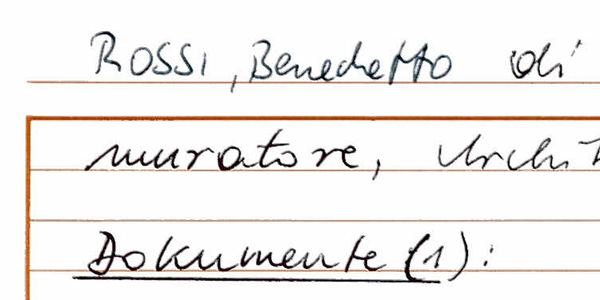 Rossi, Benedetto di
muratore, Archit
Dokumente (1):